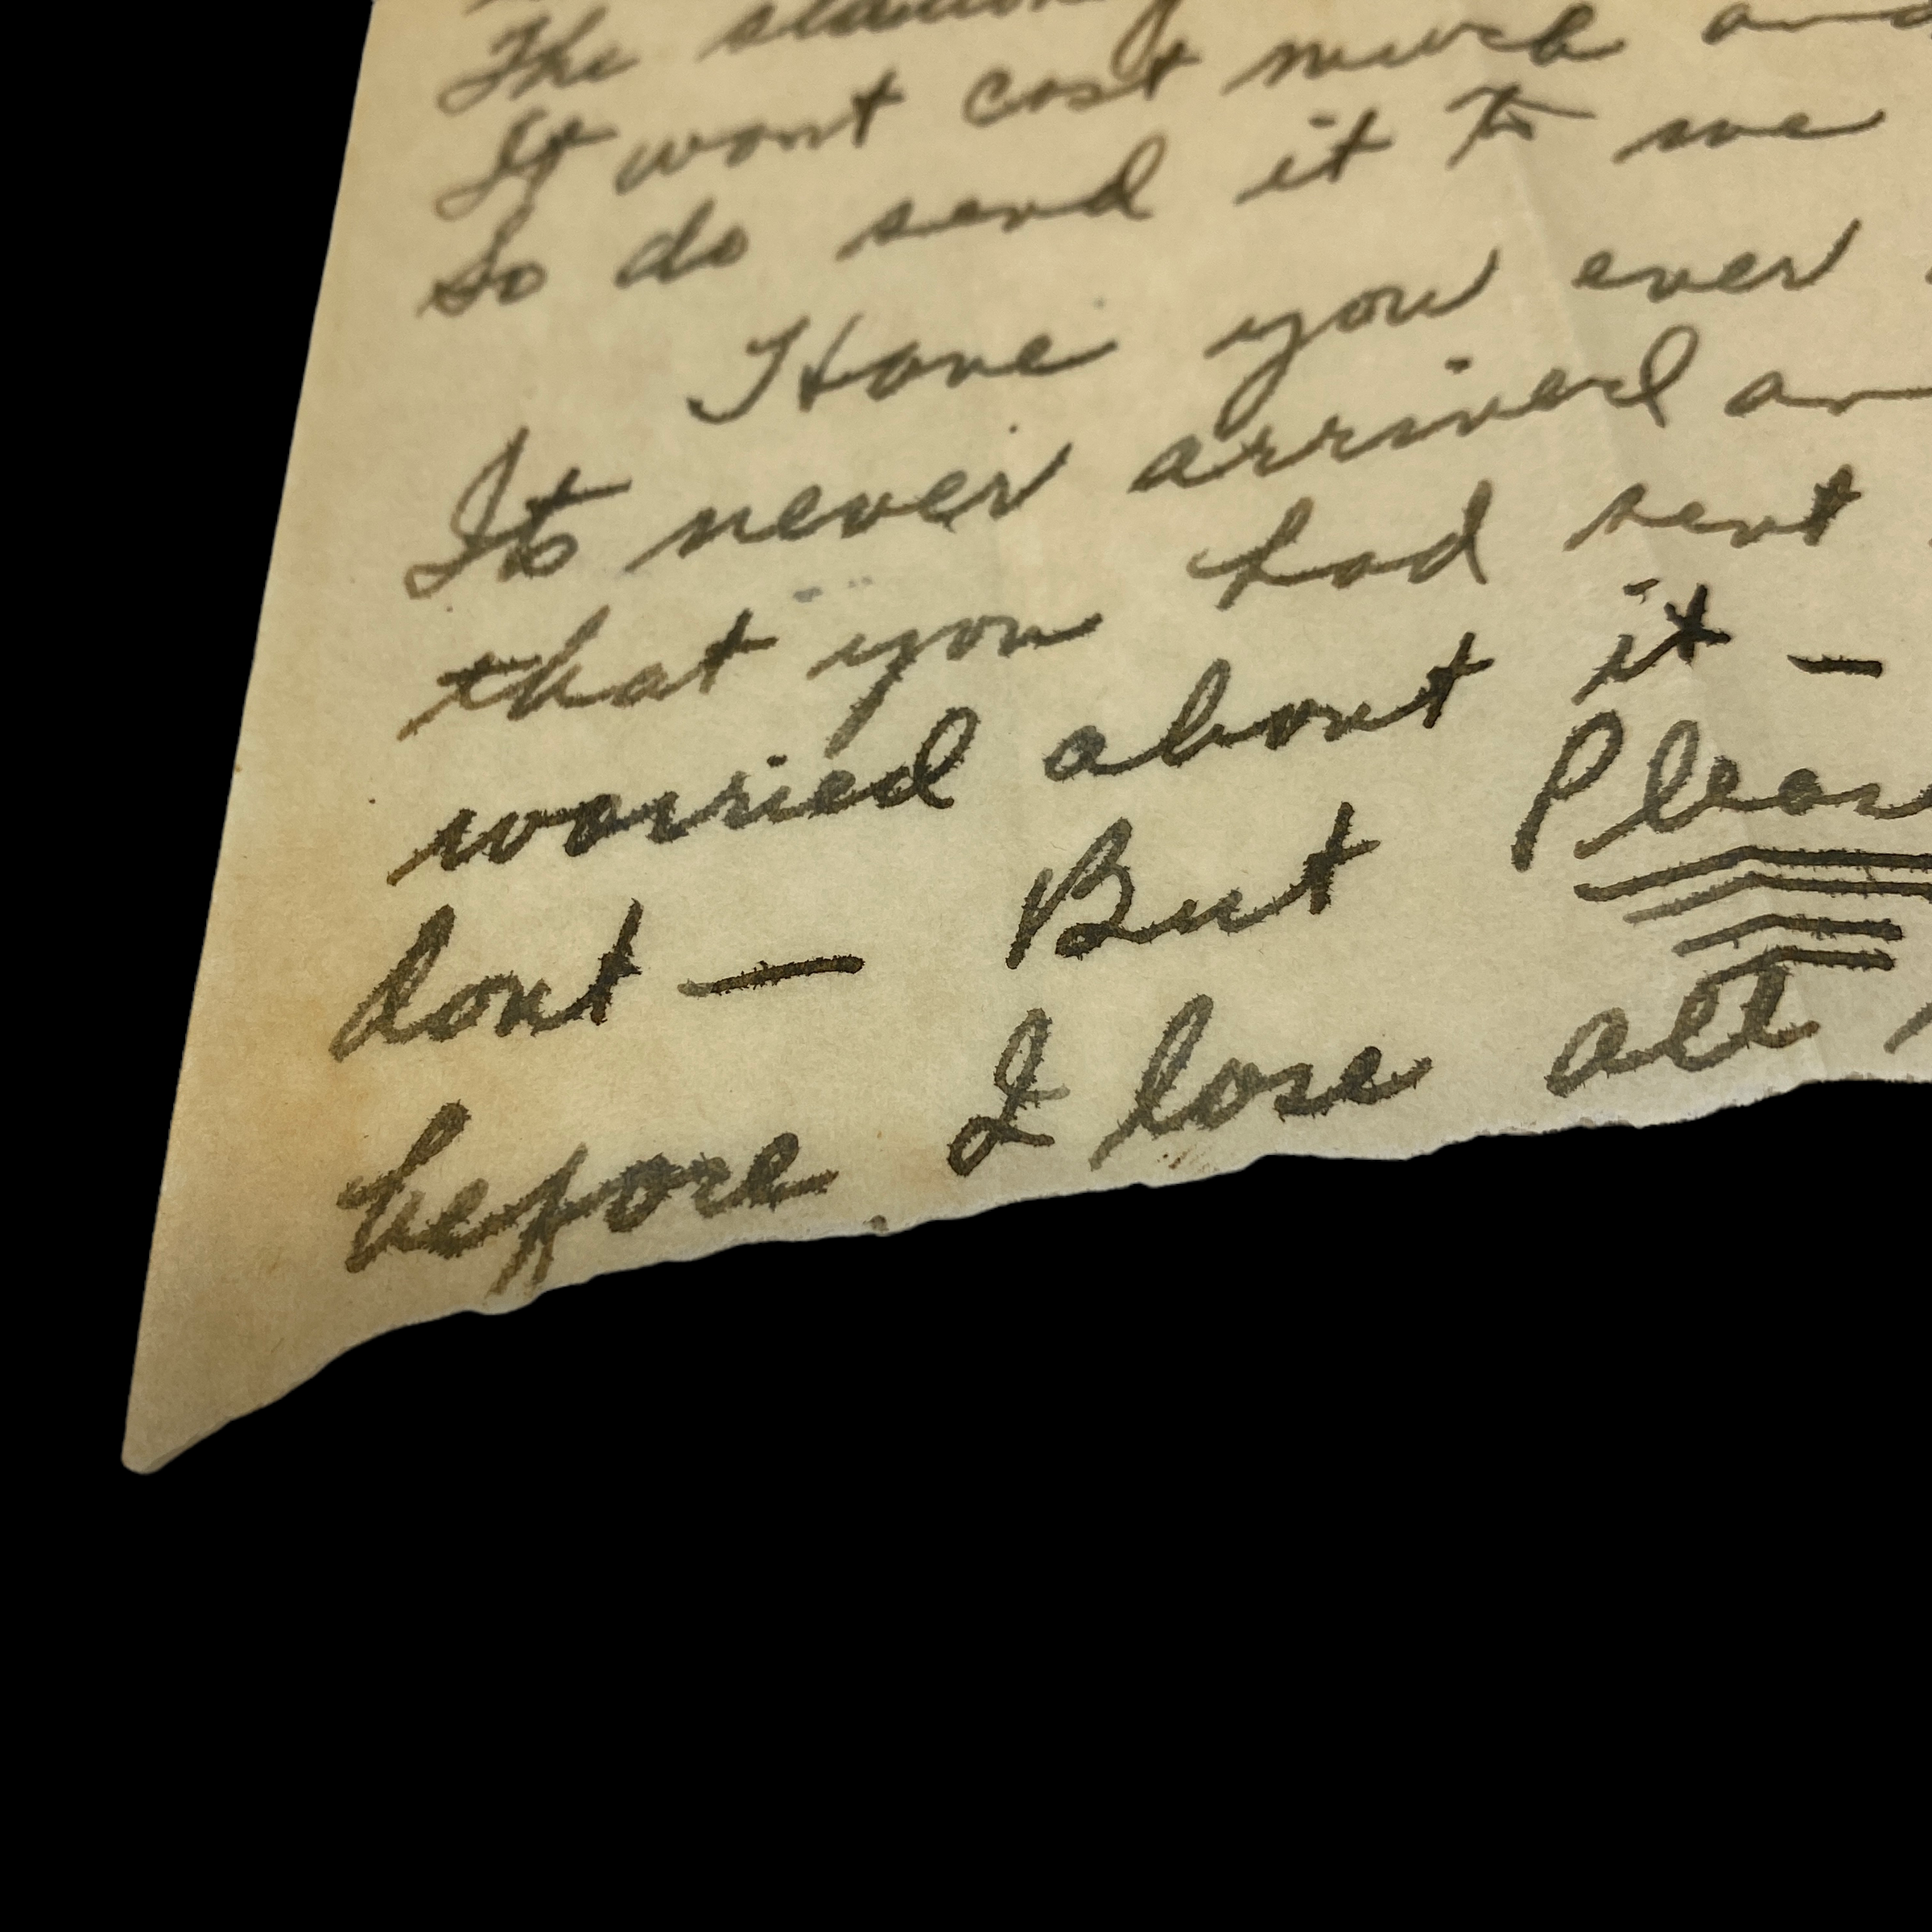 The
It wont cost much and
So do send it to me
Have you ever
Its never arrived an
that you had sent
worried about it —
dont — But Pleas
before I lose all